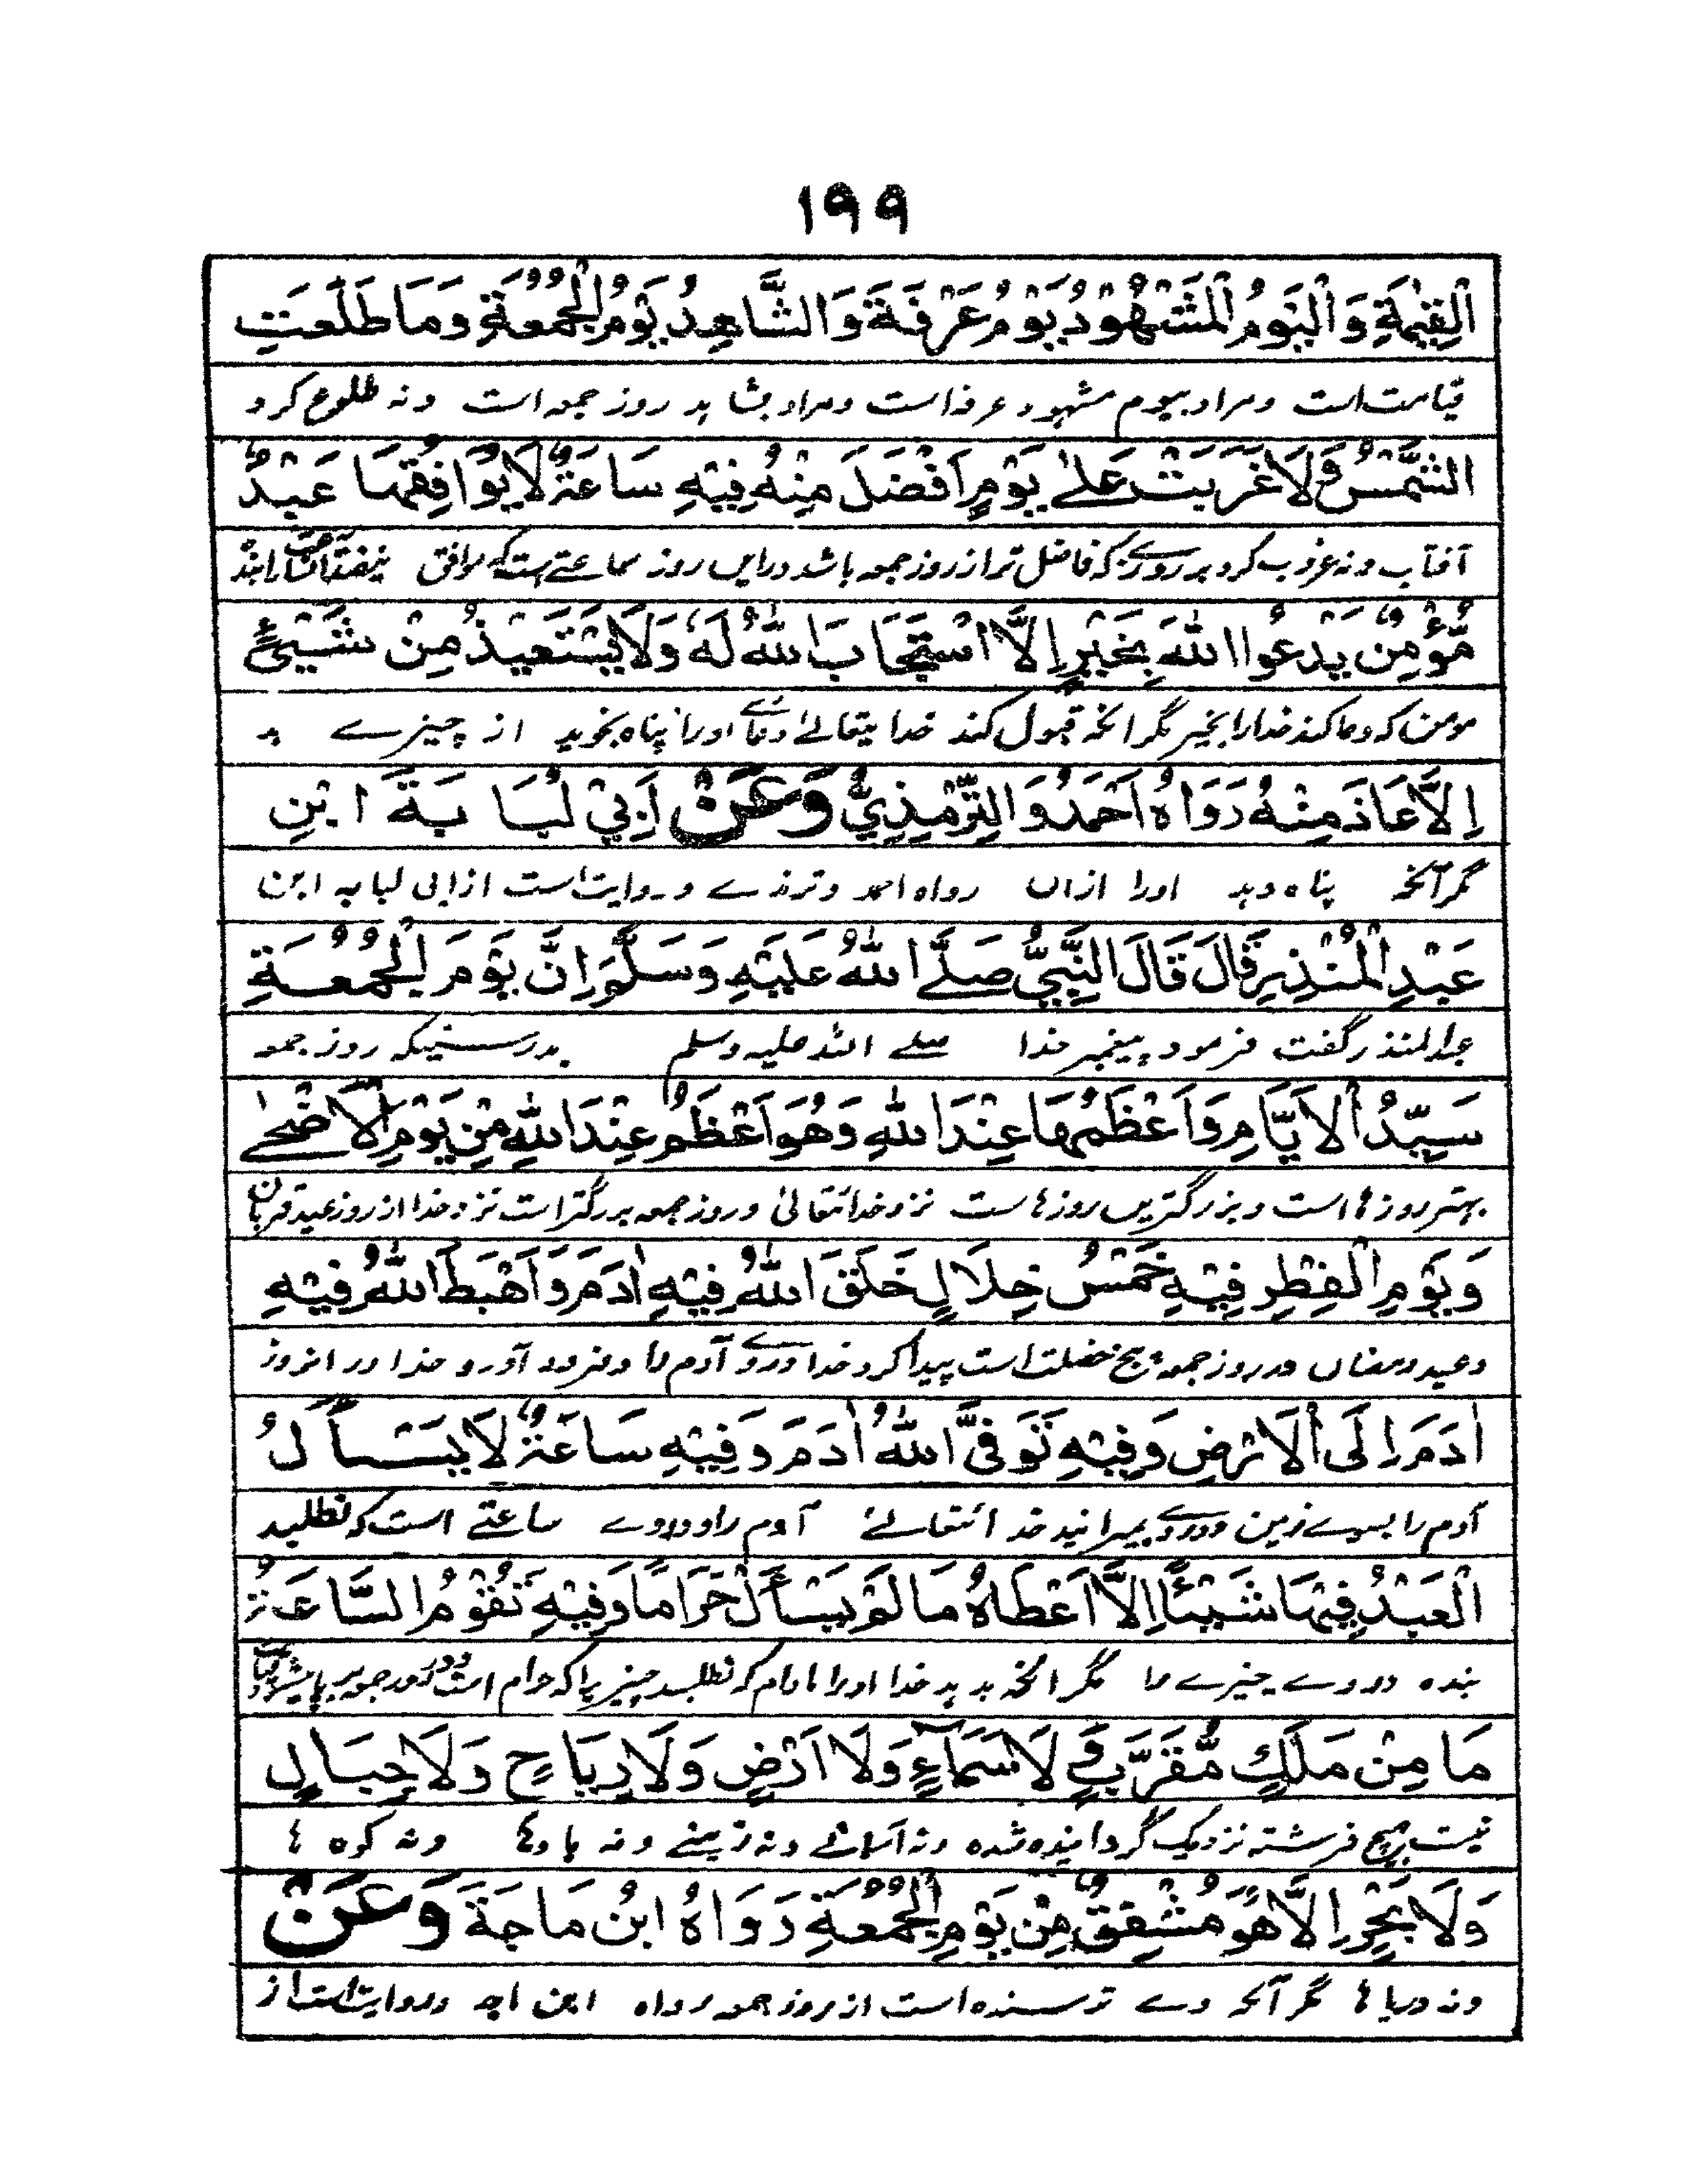 ١٩٩
الْقِيٰمَةِ وَالْيَوْمُ الْمَشْهُوْدُ يَوْمُ عَرْفَةَ وَالشَّاهِدُ يَوْمُ الْجُمُعَةِ وَمَا طَلَعَتِ
قیامت است ومراد بیوم مشهود عرفه است ومراد بشاهد روز جمعه است ونه طلوع کرد
الشَّمْسُ وَلَا غَرَبَتْ عَلٰے يَوْمٍ اَفْضَلَ مِنْهُ فِيْهِ سَاعَةٌ لَا يُوَافِقُهَا عَبْدٌ
آفتاب ونه غروب کرد بر روزے که فاضل تر از روز جمعه باشد دراین روز ساعتے هست که موافق
مُّؤْمِنٌ يَدْعُوا اللّٰهَ بِخَيْرٍ اِلَّا اسْتَجَابَ اللّٰهُ لَهٗ وَلَا يَسْتَعِيْذُ مِنْ شَيْئٍ
مومن که دعا کند خدا را بخیر مگر آنکه قبول کند خدا یتعالےٰ دعاے اورا پناه بخوید از چیزے بد
اِلَّا عَاذَ مِنْهُ رَوَاهُ اَحْمَدُ وَالتِّرْمِذِيُّ وَعَنْ اَبِيْ لُبَا بَةَ ابْنِ
مگر آنکه پناه دهد اورا ازاں رواه احمد وترمذے وروایت است ازابی لبابه ابن
عَبْدِ الْمُنْذِرِ قَالَ قَالَ النَّبِيُّ صَلَّے اللّٰهُ عَلَيْهِ وَسَلَّمَ اِنَّ يَوْمَ الْجُمُعَةِ
عبدالمنذر گفت فرمود پیغمبر خدا صلے الله علیه وسلم بدرستیکه روز جمعه
سَيِّدُ الْاَيَّامِ وَاَعْظَمُهَا عِنْدَ اللّٰهِ وَهُوَ اَعْظَمُ عِنْدَ اللّٰهِ مِنْ يَوْمِ الْاَضْحٰے
بهتر روزها است وبزرگترین روزهاست نزد خدا تعالیٰ وروز جمعه بزرگتراست نزد خدا از روز عید قربان
وَيَوْمِ الْفِطْرِ فِيْهِ خَمْسُ خِلَالٍ خَلَقَ اللّٰهُ فِيْهِ اٰدَمَ وَاَهْبَطَ اللّٰهُ فِيْهِ
وعید رمضاں در روز جمعه پنج خصلت است پیدا کرد خدا دروے آدم را وفرود آورد خدا در انروز
اٰدَمَ اِلَى الْاَرْضِ وَفِيْهِ تَوَفَّى اللّٰهُ اٰدَمَ وَفِيْهِ سَاعَةٌ لَا يَسْاَلُ
آدم را بسوے زمین ودروے بمیرانید خدا ئتعالےٰ آدم را ودروے ساعتے است که نطلبد
الْعَبْدُ فِيْهَا شَيْئًا اِلَّا اَعْطَاهُ مَا لَمْ يَسْأَلْ حَرَامًا وَفِيْهِ تَقُوْمُ السَّاعَةُ
بنده دروے چیزے را مگر آنکه بدهد خدا اورا مادام که نطلبد چیزیرا که حرام است ودر روز جمعه برپا میشود قیامت
مَا مِنْ مَلَكٍ مُّقَرَّبٍ وَّلَا سَمَآءٍ وَلَا اَرْضٍ وَلَا رِيَاحٍ وَلَا جِبَالٍ
نیست هیچ فرشته نزدیک گردانیده شده ونه آسمانے ونه زمینے ونه بادها ونه کوه ها
وَلَا بَحْرٍ اِلَّا هُوَ مُشْفِقٌ مِنْ يَوْمِ الْجُمُعَةِ رَوَاهُ ابْنُ مَاجَةَ وَعَنْ
ونه دریا ها مگر آنکه وے ترسنده است از روز جمعه رواه ابن ماجه وروایت است از